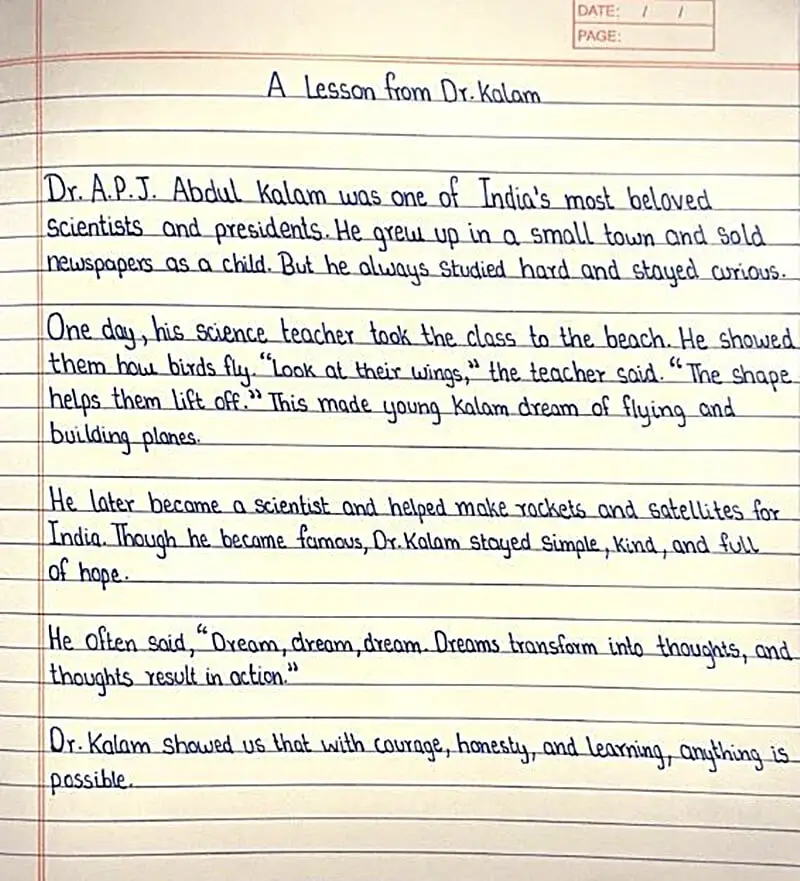 DATE: / /
PAGE:
A Lesson from Dr. Kalam
Dr. A.P.J. Abdul Kalam was one of India's most beloved
scientists and presidents. He grew up in a small town and sold
newspapers as a child. But he always studied hard and stayed curious.
One day, his science teacher took the class to the beach. He showed
them how birds fly. “Look at their wings,” the teacher said. “The shape
helps them lift off.” This made young Kalam dream of flying and
building planes.
He later became a scientist and helped make rockets and satellites for
India. Though he became famous, Dr. Kalam stayed simple, kind, and full
of hope.
He often said, “Dream, dream, dream. Dreams transform into thoughts, and
thoughts result in action.”
Dr. Kalam showed us that with courage, honesty, and learning, anything is
possible.